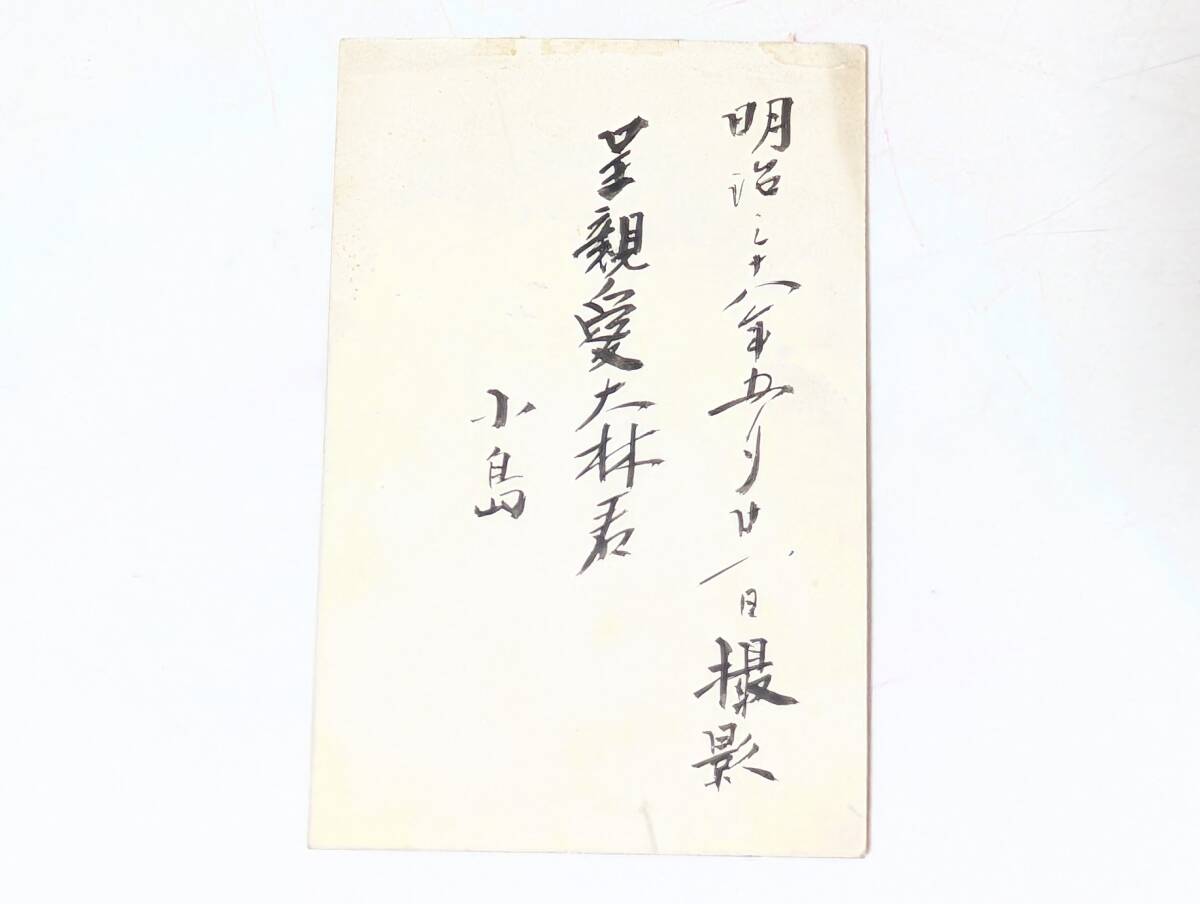 明治三十八年五月廿一日撮影
呈親愛大林君
小島